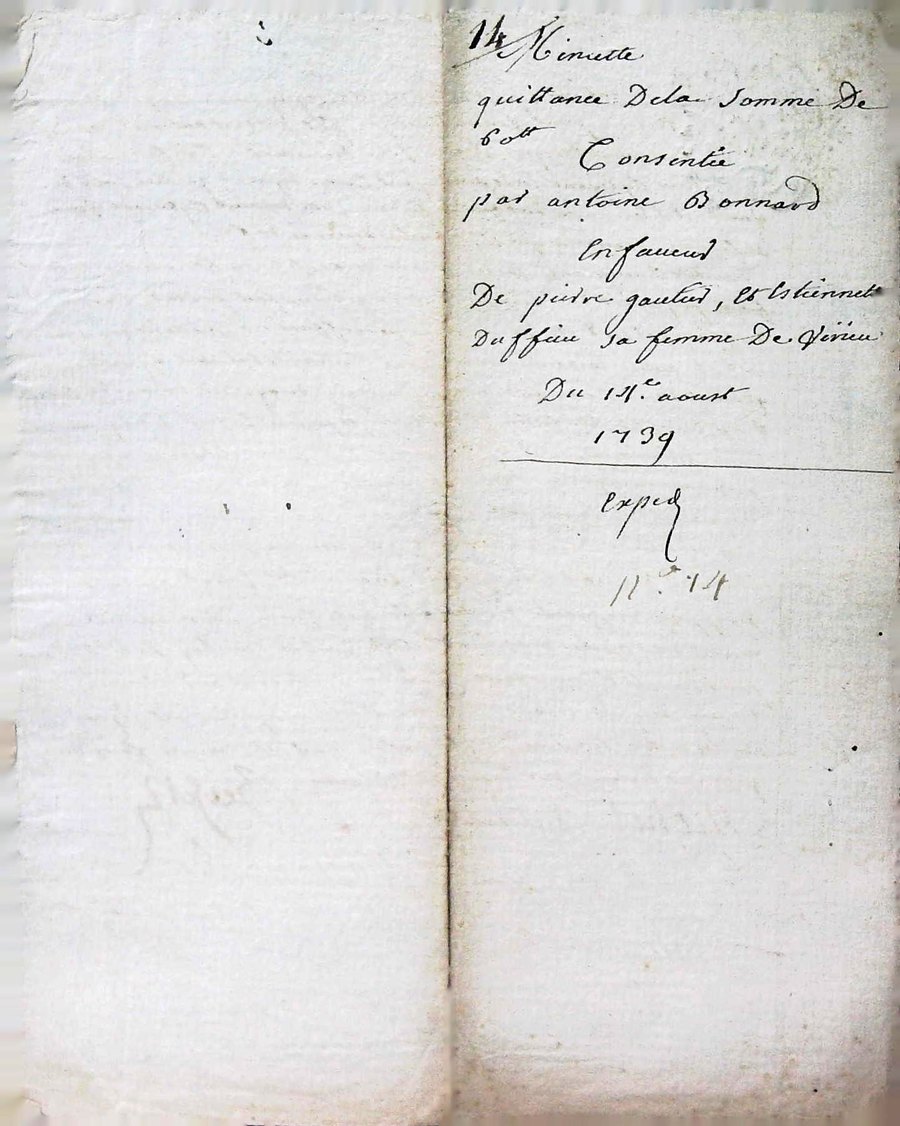 14 Minutte
quittance Dela Somme De
60tt
Consentie
par antoine Bonnard
En faueur
De pierre gautier, Et Estiennet
Duffieu sa femme De Virieu
Du 14.e aoust
1739
Exped
N.o 14